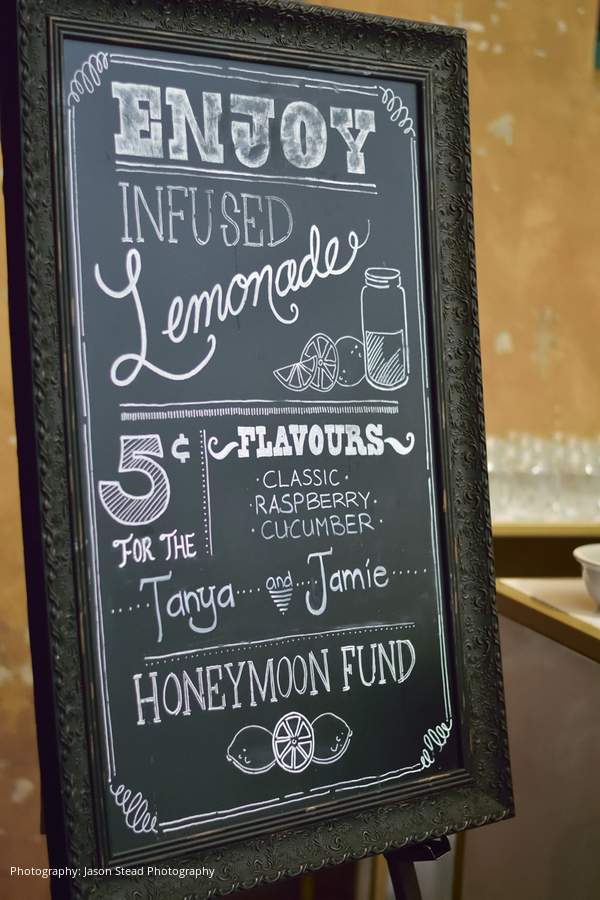 ENJOY
INFUSED
Lemonade
5¢
FOR THE
FLAVOURS
·CLASSIC·
·RASPBERRY·
·CUCUMBER·
Tanya and Jamie
HONEYMOON FUND
Photography: Jason Stead Photography